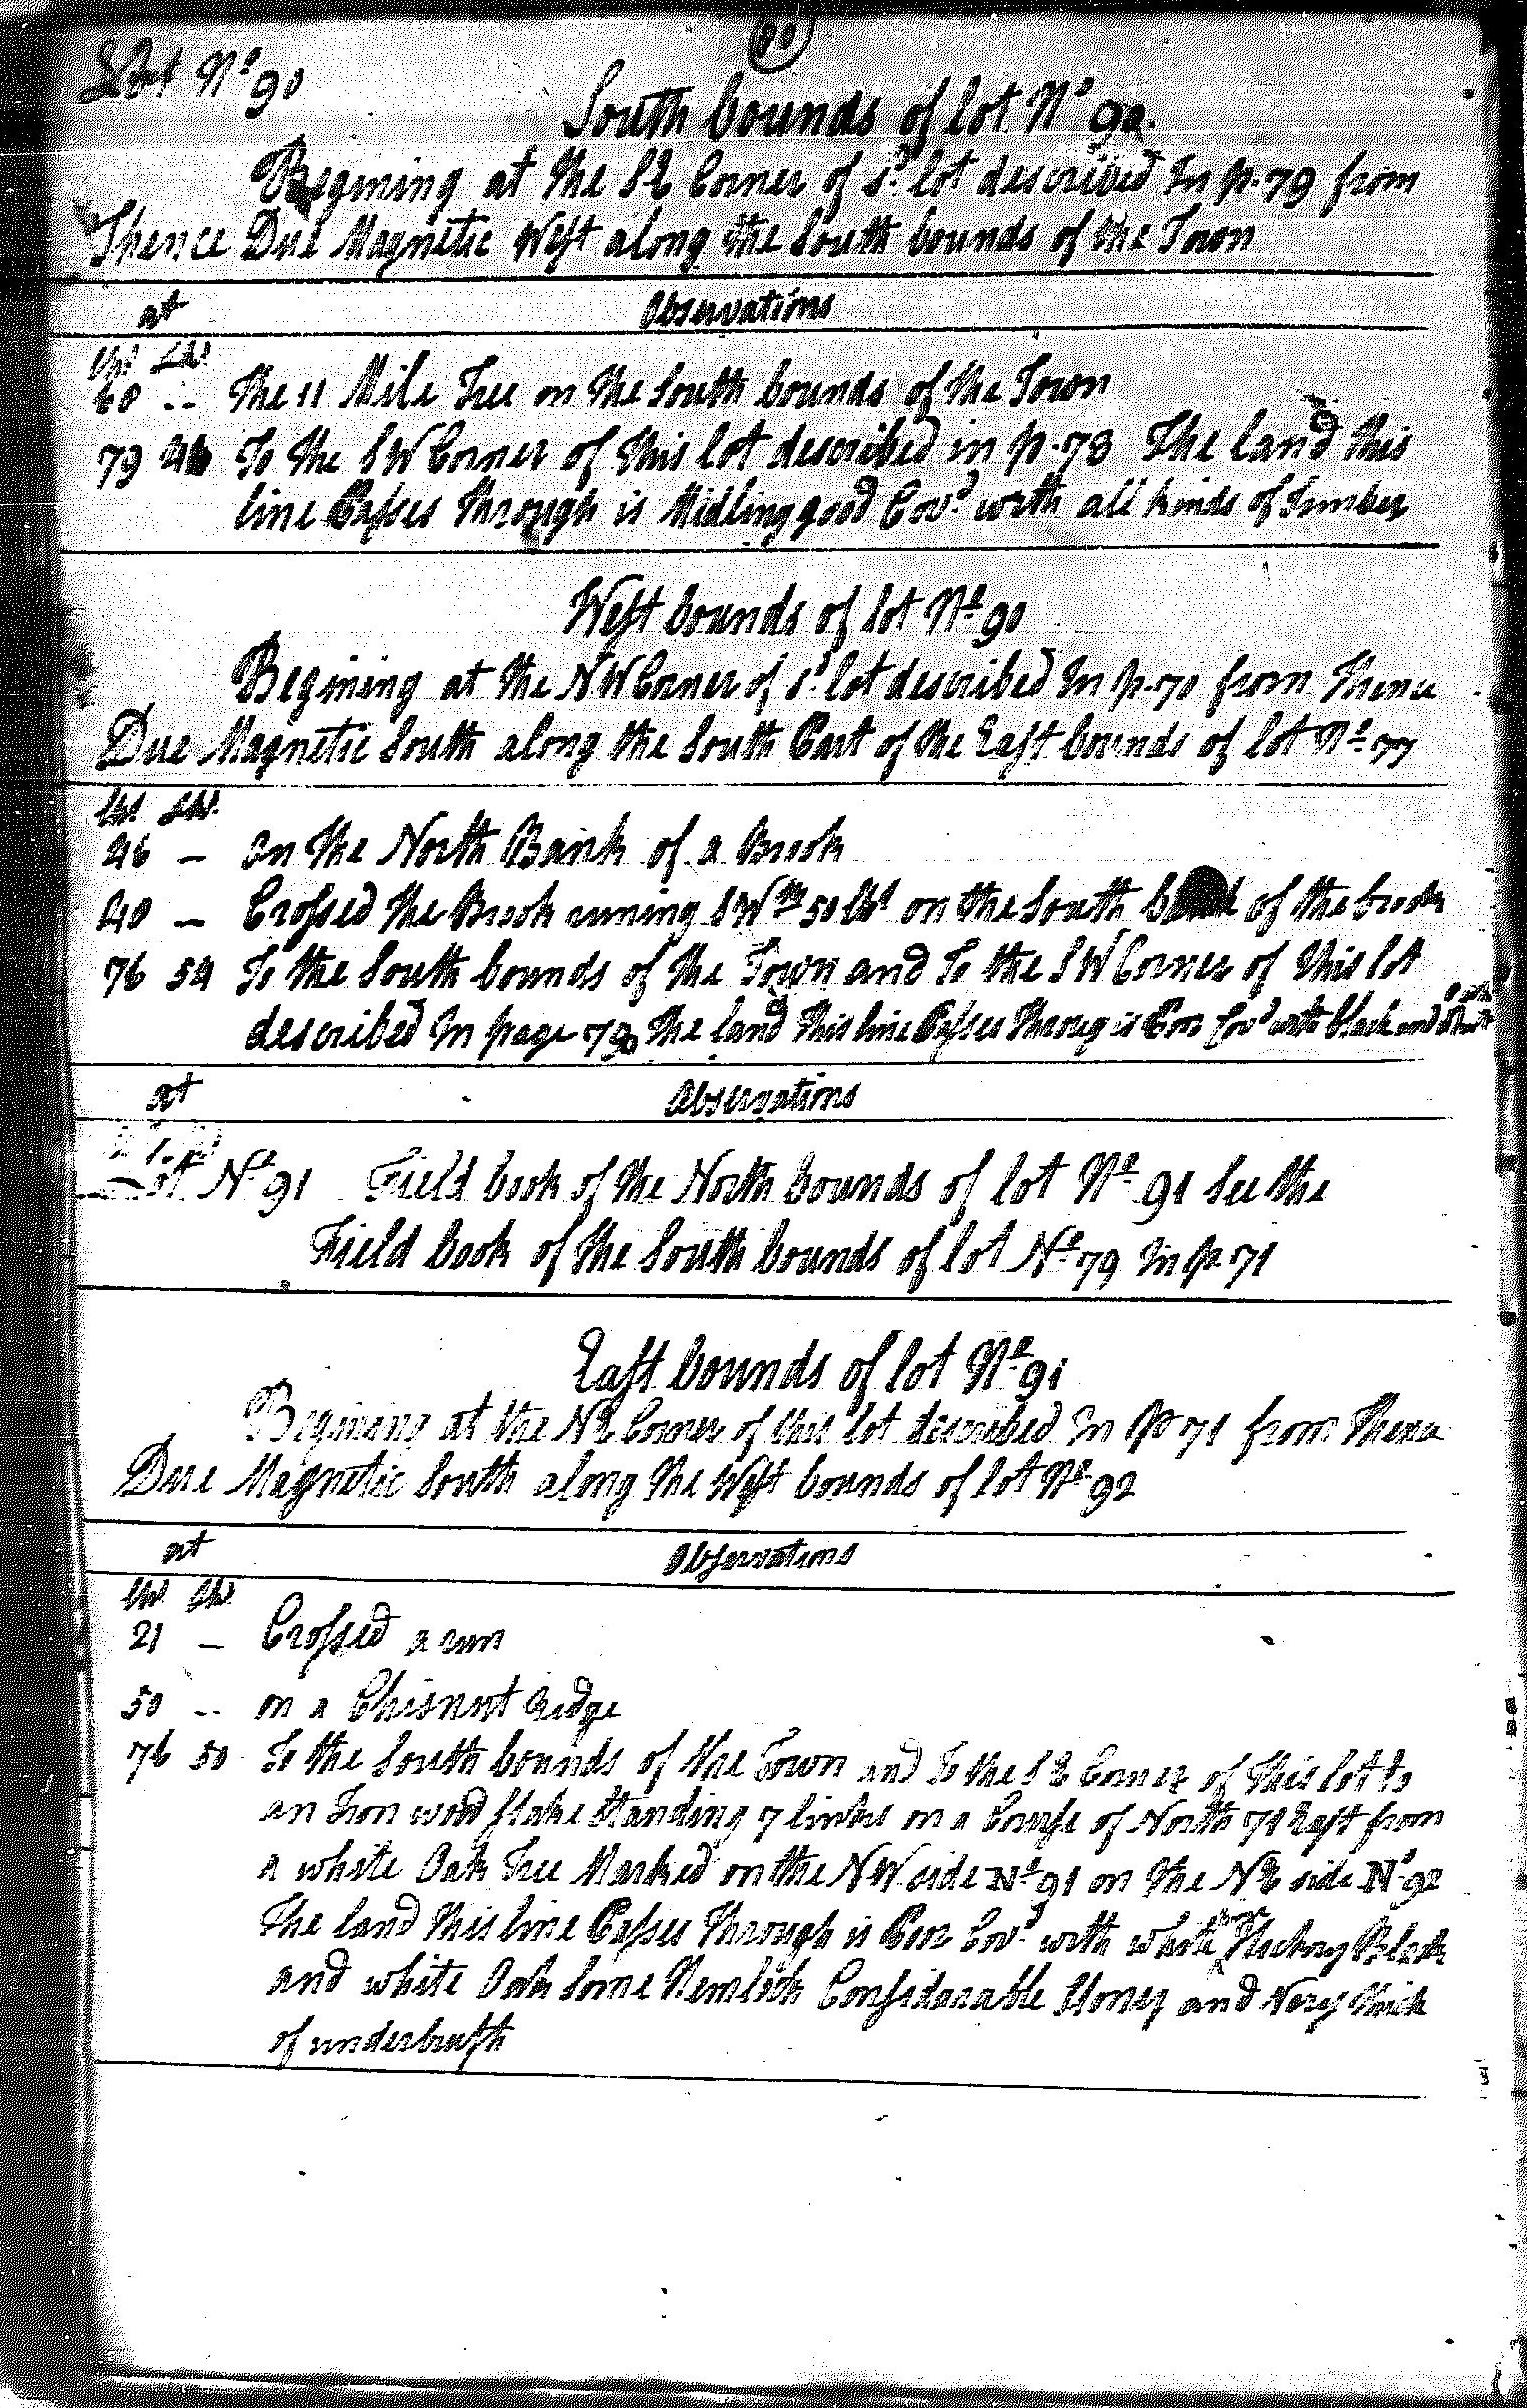 80
Lot No 90
South bounds of lot No 90.
Begining at the SE Corner of sd lot described In p. 79 from
Thence Due Magnetic West along the South bounds of the Town
at Observations
Chs Lks
60 .. The 11 Mile Tree on the South bounds of the Town
79 To the SW Corner of this lot described in p. 78 The land this
line Passes through is Midling good Covd with all kinds of Timber
West bounds of lot No 90
Begining at the NW Corner of sd lot described In p. 70 from Thence
Due Magnetic South along the South Part of the East bounds of lot No 77
Chs Lks
26 – On the North Bank of a Brook
40 – Crossed the Brook runing SW 50 lks on the South bank of the brook
76 54 To the South bounds of the Town and To the SW Corner of this lot
described In page 78 The land this line Passes Throug is Poor Covd with black and white
at Observations
Lot No 91 Field book of the North bounds of lot No 91 See the
Field book of the South bounds of lot No 79 In p. 71
East bounds of lot No 91
Begining at the NE Corner of this lot described In p 71 from Thence
Due Magnetic South along the West bounds of lot No 92
at Observations
Chs Lks
21 – Crossed a run
50 .. on a Chisnut Ridge
76 50 To the South bounds of the Town and To the SE Corner of this lot to
an Iron wood stake Standing 7 links on a Course of North 71 East from
a white Oak Tree Marked on the NW side No 91 on the NE side No 92
The land this line Passes Through is Poor Covd with white Hickory Black
and white Oak Some Hemlock Considarable Stoney and Very thick
of underbrush